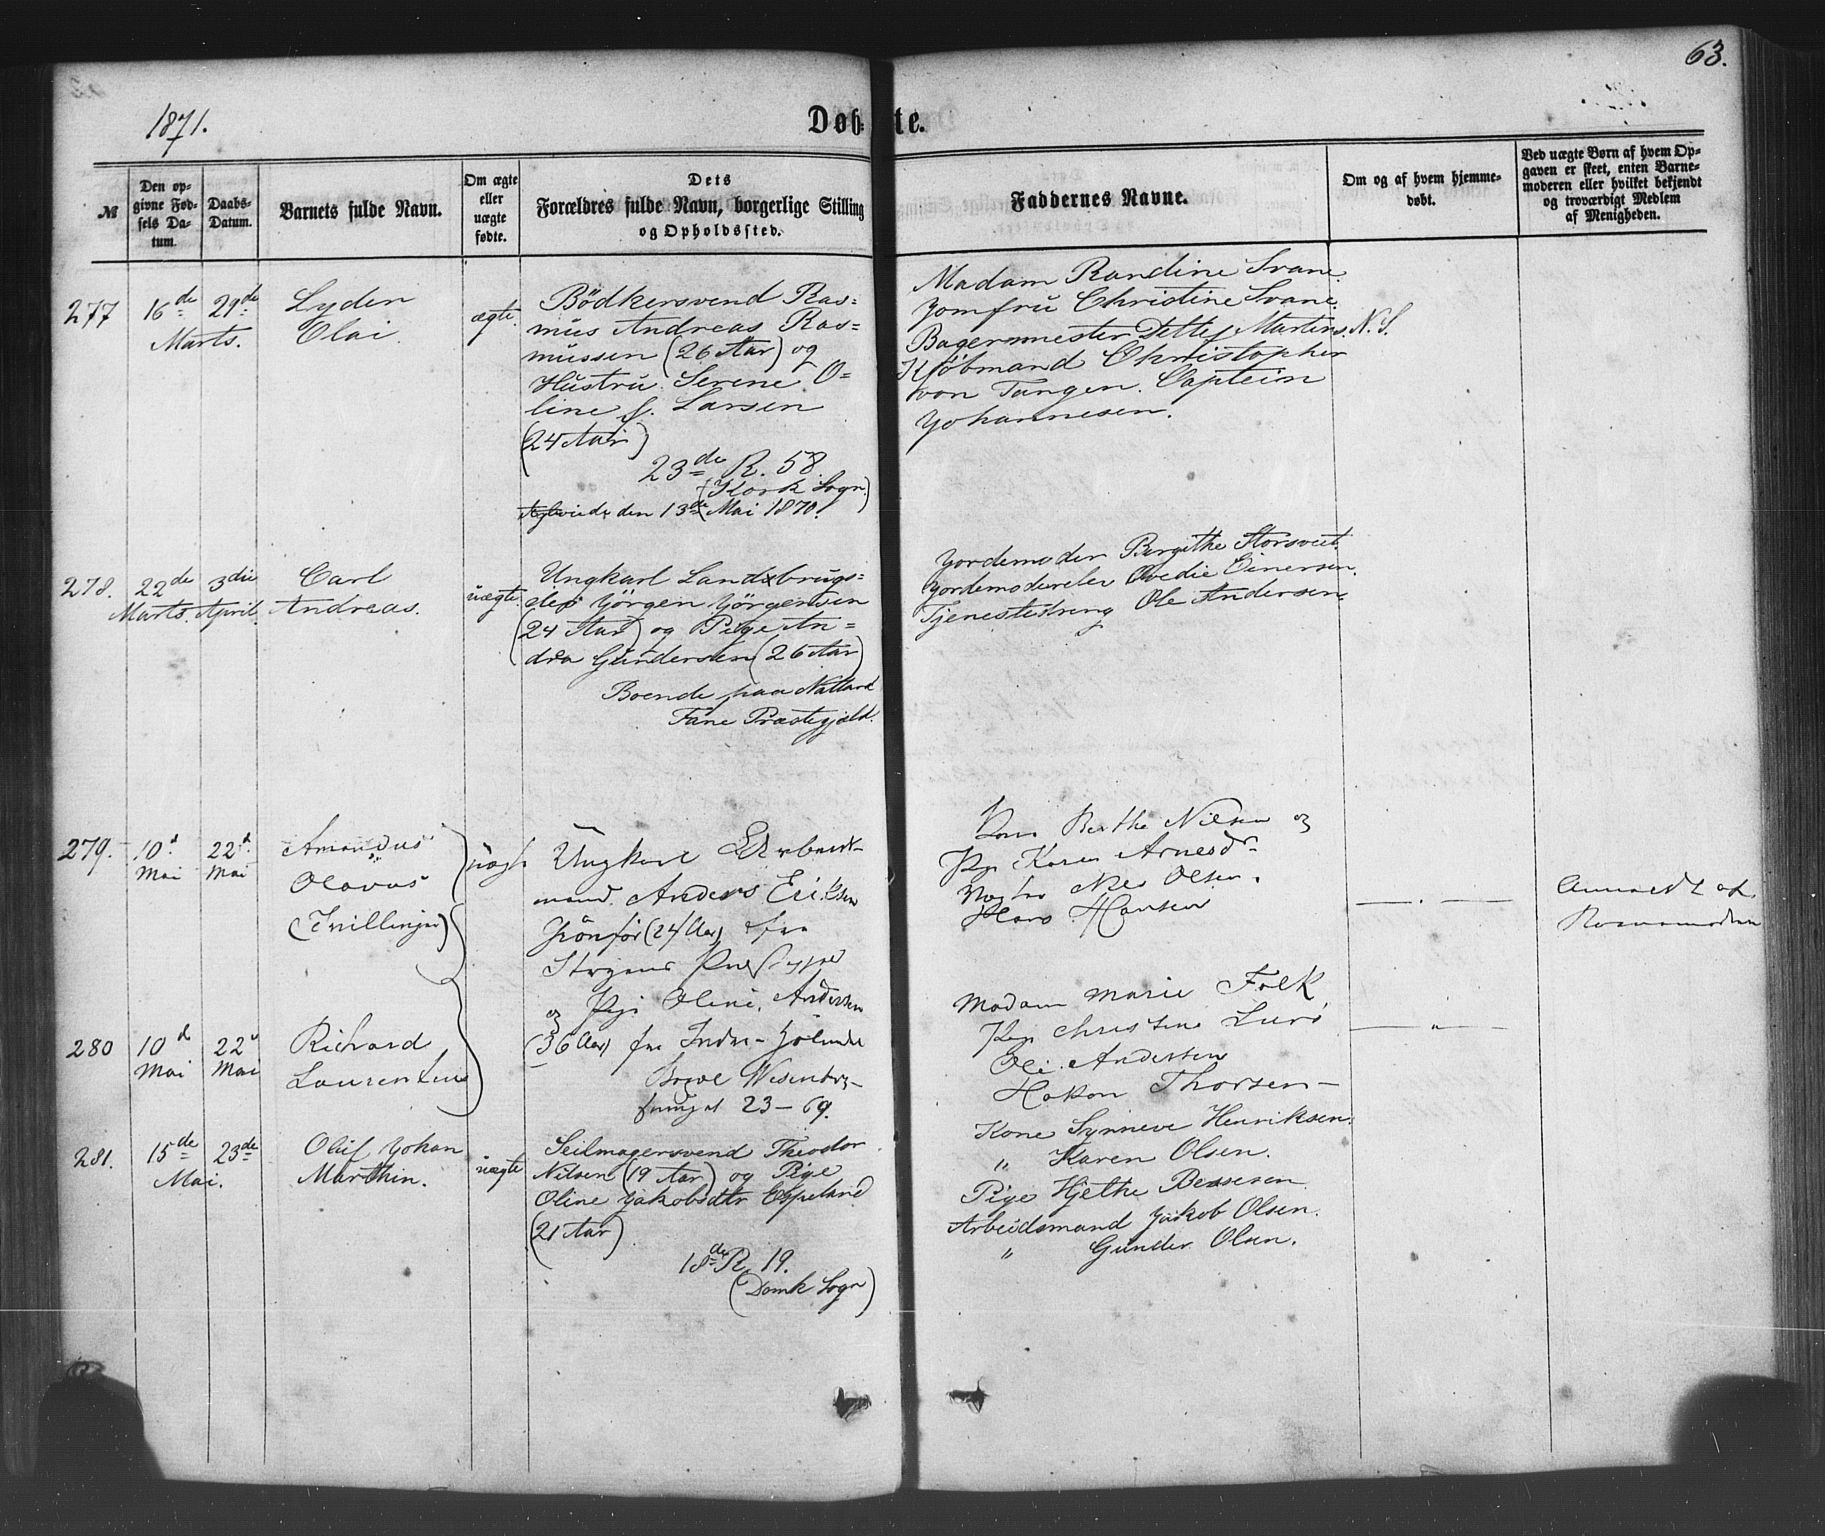 63.
1871.
Døb- te.
№
Den op-
givne Fød-
sels Da-
tum.
Daabs-
Datum.
Barnets fulde Navn.
Om ægte
eller
uægte
fødte.
Dets
Forældres fulde Navn, borgerlige Stilling
og Opholdssted.
Faddernes Navne.
Om og af hvem hjemme-
døbt.
Ved uægte Børn af hvem Op-
gaven er skeet, enten Barne-
moderen eller hvilket bekjendt
og troværdigt Medlem
af Menigheden.
277
16de
Marts.
29de
Lyder
Olai.
ægte.
Bödkersvend Ras=
mus Andreas Ras=
mussen (26 Aar) og
Hustru Serene O=
line f. Larsen
(24 Aar)
23de R. 58.
(Kork. Sogn.)
den 13de Mai 1870.
Madam Randine Svane
Jomfru Christine Svane.
Bagermester Detlef Martens. N. S.
Kjøbmand Christopher
von Tangen. Captein
Johannesen.
278.
22de
Marts.
3die
April.
Carl
Andreas.
uægte.
Ungkarl Landbrugs=
elev Jörgen Jörgensen
(24 Aar) og Pige An=
dra Gundersen (26 Aar)
Boende paa Natland
Fane Præstegjæld.
Jordemoder Bergithe Storsveit.
Jordemoderelev Ovedie Einersen.
Tjenestedreng Ole Andersen.
279.
10d
Mai
22d
Mai
Amandus
Olavus
(Tvillinger)
uægte
Ungkarl Arbeids-
mand Anders Eriksen
(24 Aar) fra
Stryens
og Pige Oline Andersen
(36 Aar) fra Indre-
23-69.
Kone Berthe Nilsen og
Pige Karen Arnesdr
Nils Olsen.
Hans Hansen
Anmeldt af
Barnemoderen
280
10d
Mai
22d
Mai
Richard
Laurentius
Madam Marie Falk
Pige Christine
Ole Andersen
Hakon Thorsen-
281.
15de
Mai.
23de
Oluf Johan
Marthin.
uægte
Seilmagersvend Theodor
Nilsen (19 Aar) og Pige
Oline Jakobsdtr Espeland
(21 Aar)
18de R. 19.
(Domk. Sogn)
Kone Synneve Henriksen.
" Karen Olsen.
Pige Hjethe Bessesen
Arbeidsmand Jakob Olsen.
" Gunder Olsen.